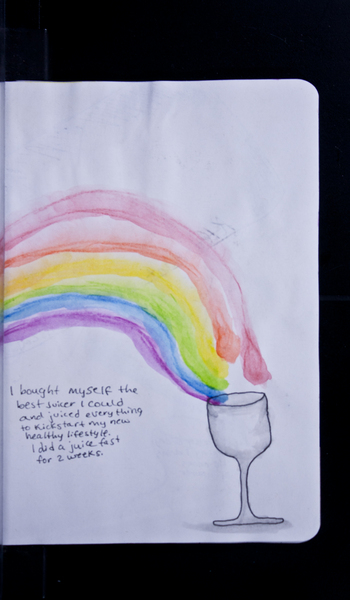 I bought myself the
best juicer I could
and juiced everything
to Kickstart my new
healthy lifestyle.
I did a juice fast
for 2 weeks.